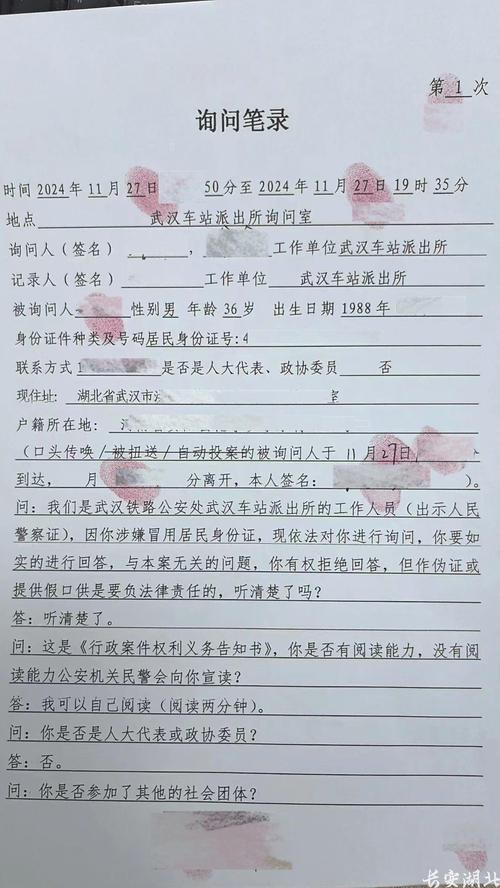 第 1 次
询问笔录
时间 2024 年 11 月 27 日 50 分至 2024 年 11 月 27 日 19 时 35 分
地点 武汉车站派出所询问室
询问人(签名) , 工作单位武汉车站派出所
记录人(签名) 工作单位 武汉车站派出所
被询问人 性别男 年龄 36 岁 出生日期 1988 年
身份证件种类及号码居民身份证号:4
联系方式1 是否是人大代表、政协委员 否
现住址: 湖北省武汉市 室
户籍所在地:
(口头传唤/被扭送/自动投案的被询问人于 11月27日,
到达, 月 分离开,本人签名: )。
问:我们是武汉铁路公安处武汉车站派出所的工作人员(出示人民
警察证),因你涉嫌冒用居民身份证,现依法对你进行询问,你要如
实的进行回答,与本案无关的问题,你有权拒绝回答,但作伪证或
提供假口供是要负法律责任的,听清楚了吗?
答:听清楚了。
问:这是《行政案件权利义务告知书》,你是否有阅读能力,没有阅
读能力公安机关民警会向你宣读?
答:我可以自己阅读(阅读两分钟)。
问:你是否是人大代表或政协委员?
答:否。
问:你是否参加了其他的社会团体?
长安湖北